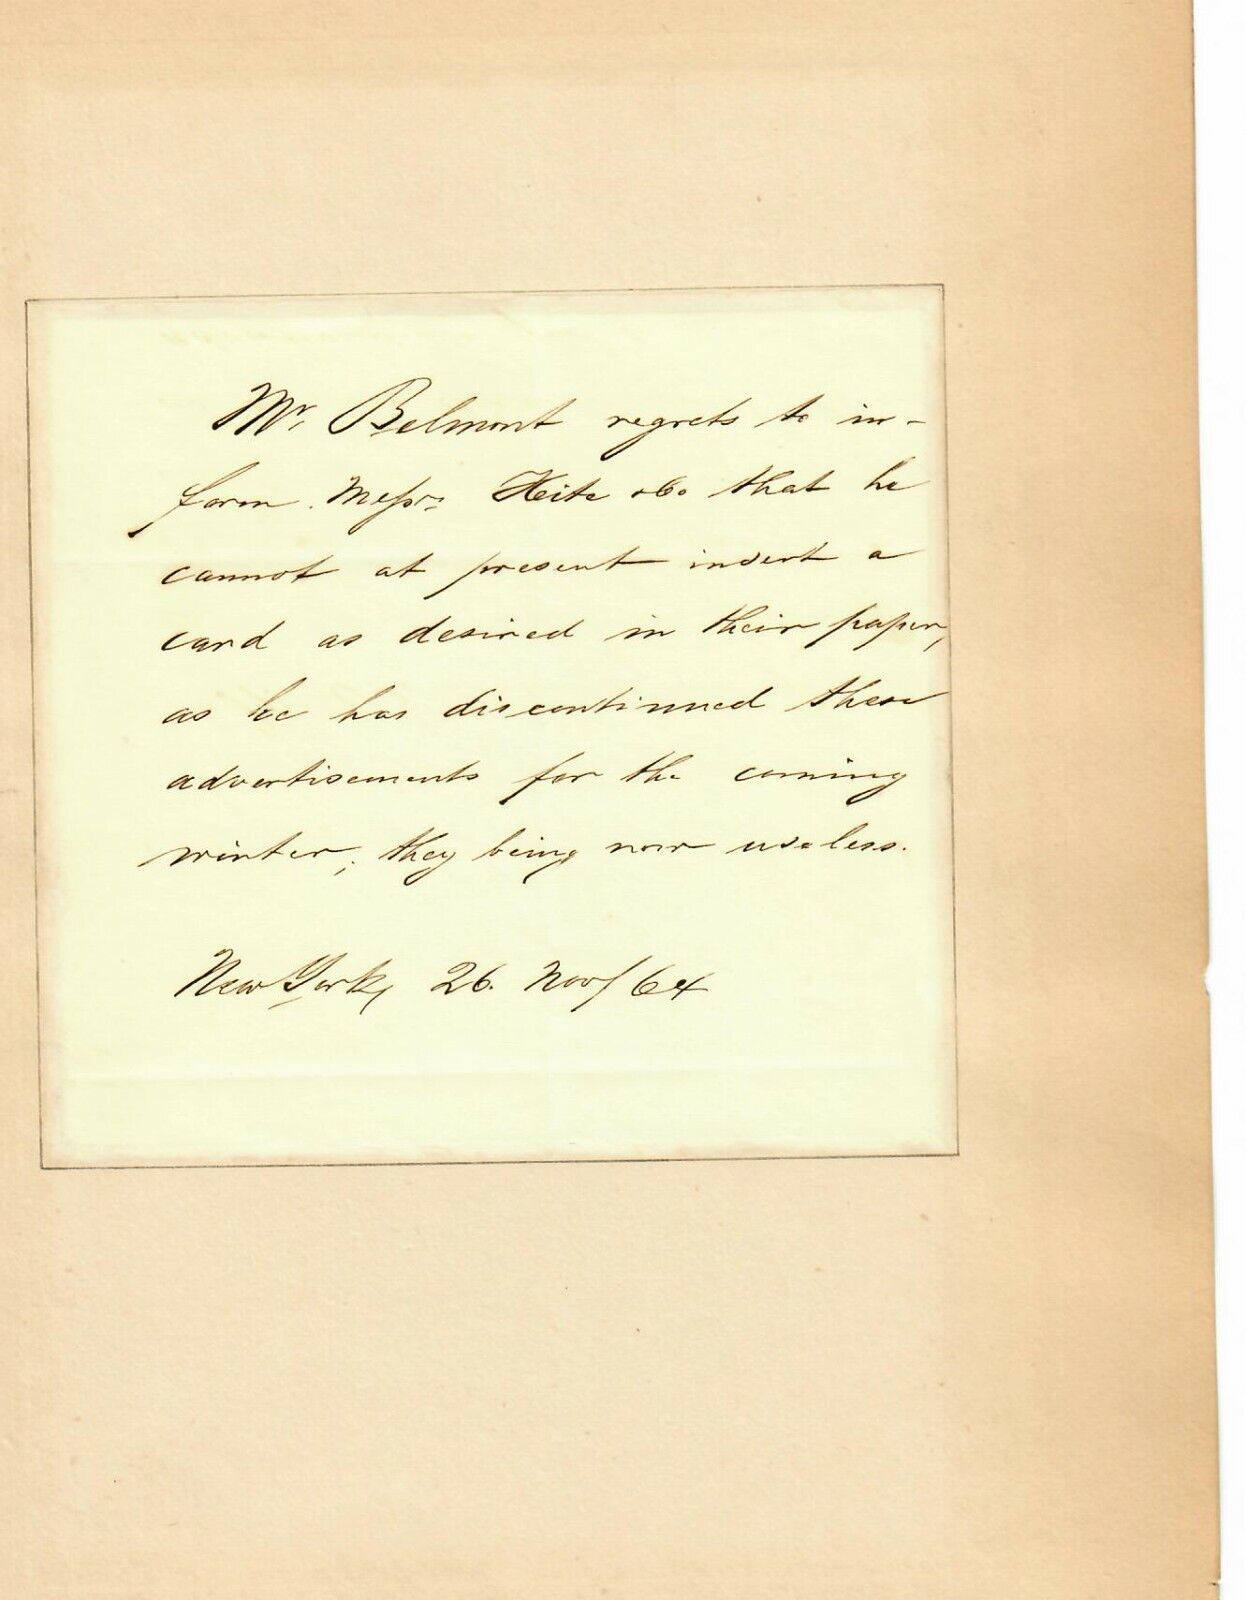 Mr. Belmont regrets to in-
form Messrs. Heite &Co that he
cannot at present insert a
card as desired in their paper,
as he has discontinued these
advertisements for the coming
winter, they being now useless.
New York, 26. Nov/64